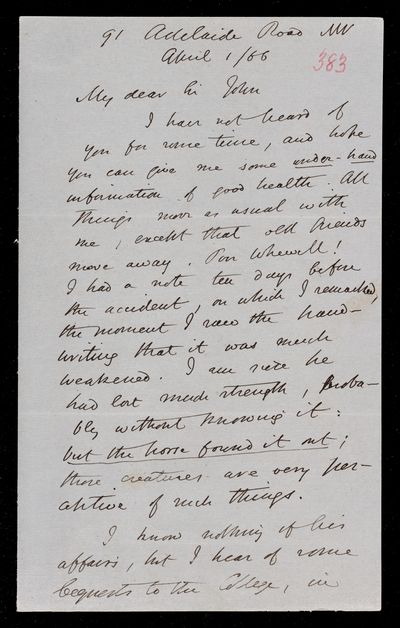 91 Adelaide Road NW
April 1/66
383
My dear Sir John
I have not heard of
you for some time, and hope
you can give me some under-hand
information of good health. All
things move as usual with
me, except that old friends
move away. Poor Whewell!
I had a note ten days before
the accident, on which I remarked,
the moment I saw the hand-
writing that it was much
weakened. I am sure he
had lost much strength, proba-
bly without knowing it:
but the horse found it out;
those creatures are very per-
ceptive of such things.
I know nothing of his
affairs, but I hear of some
bequests to the College, in